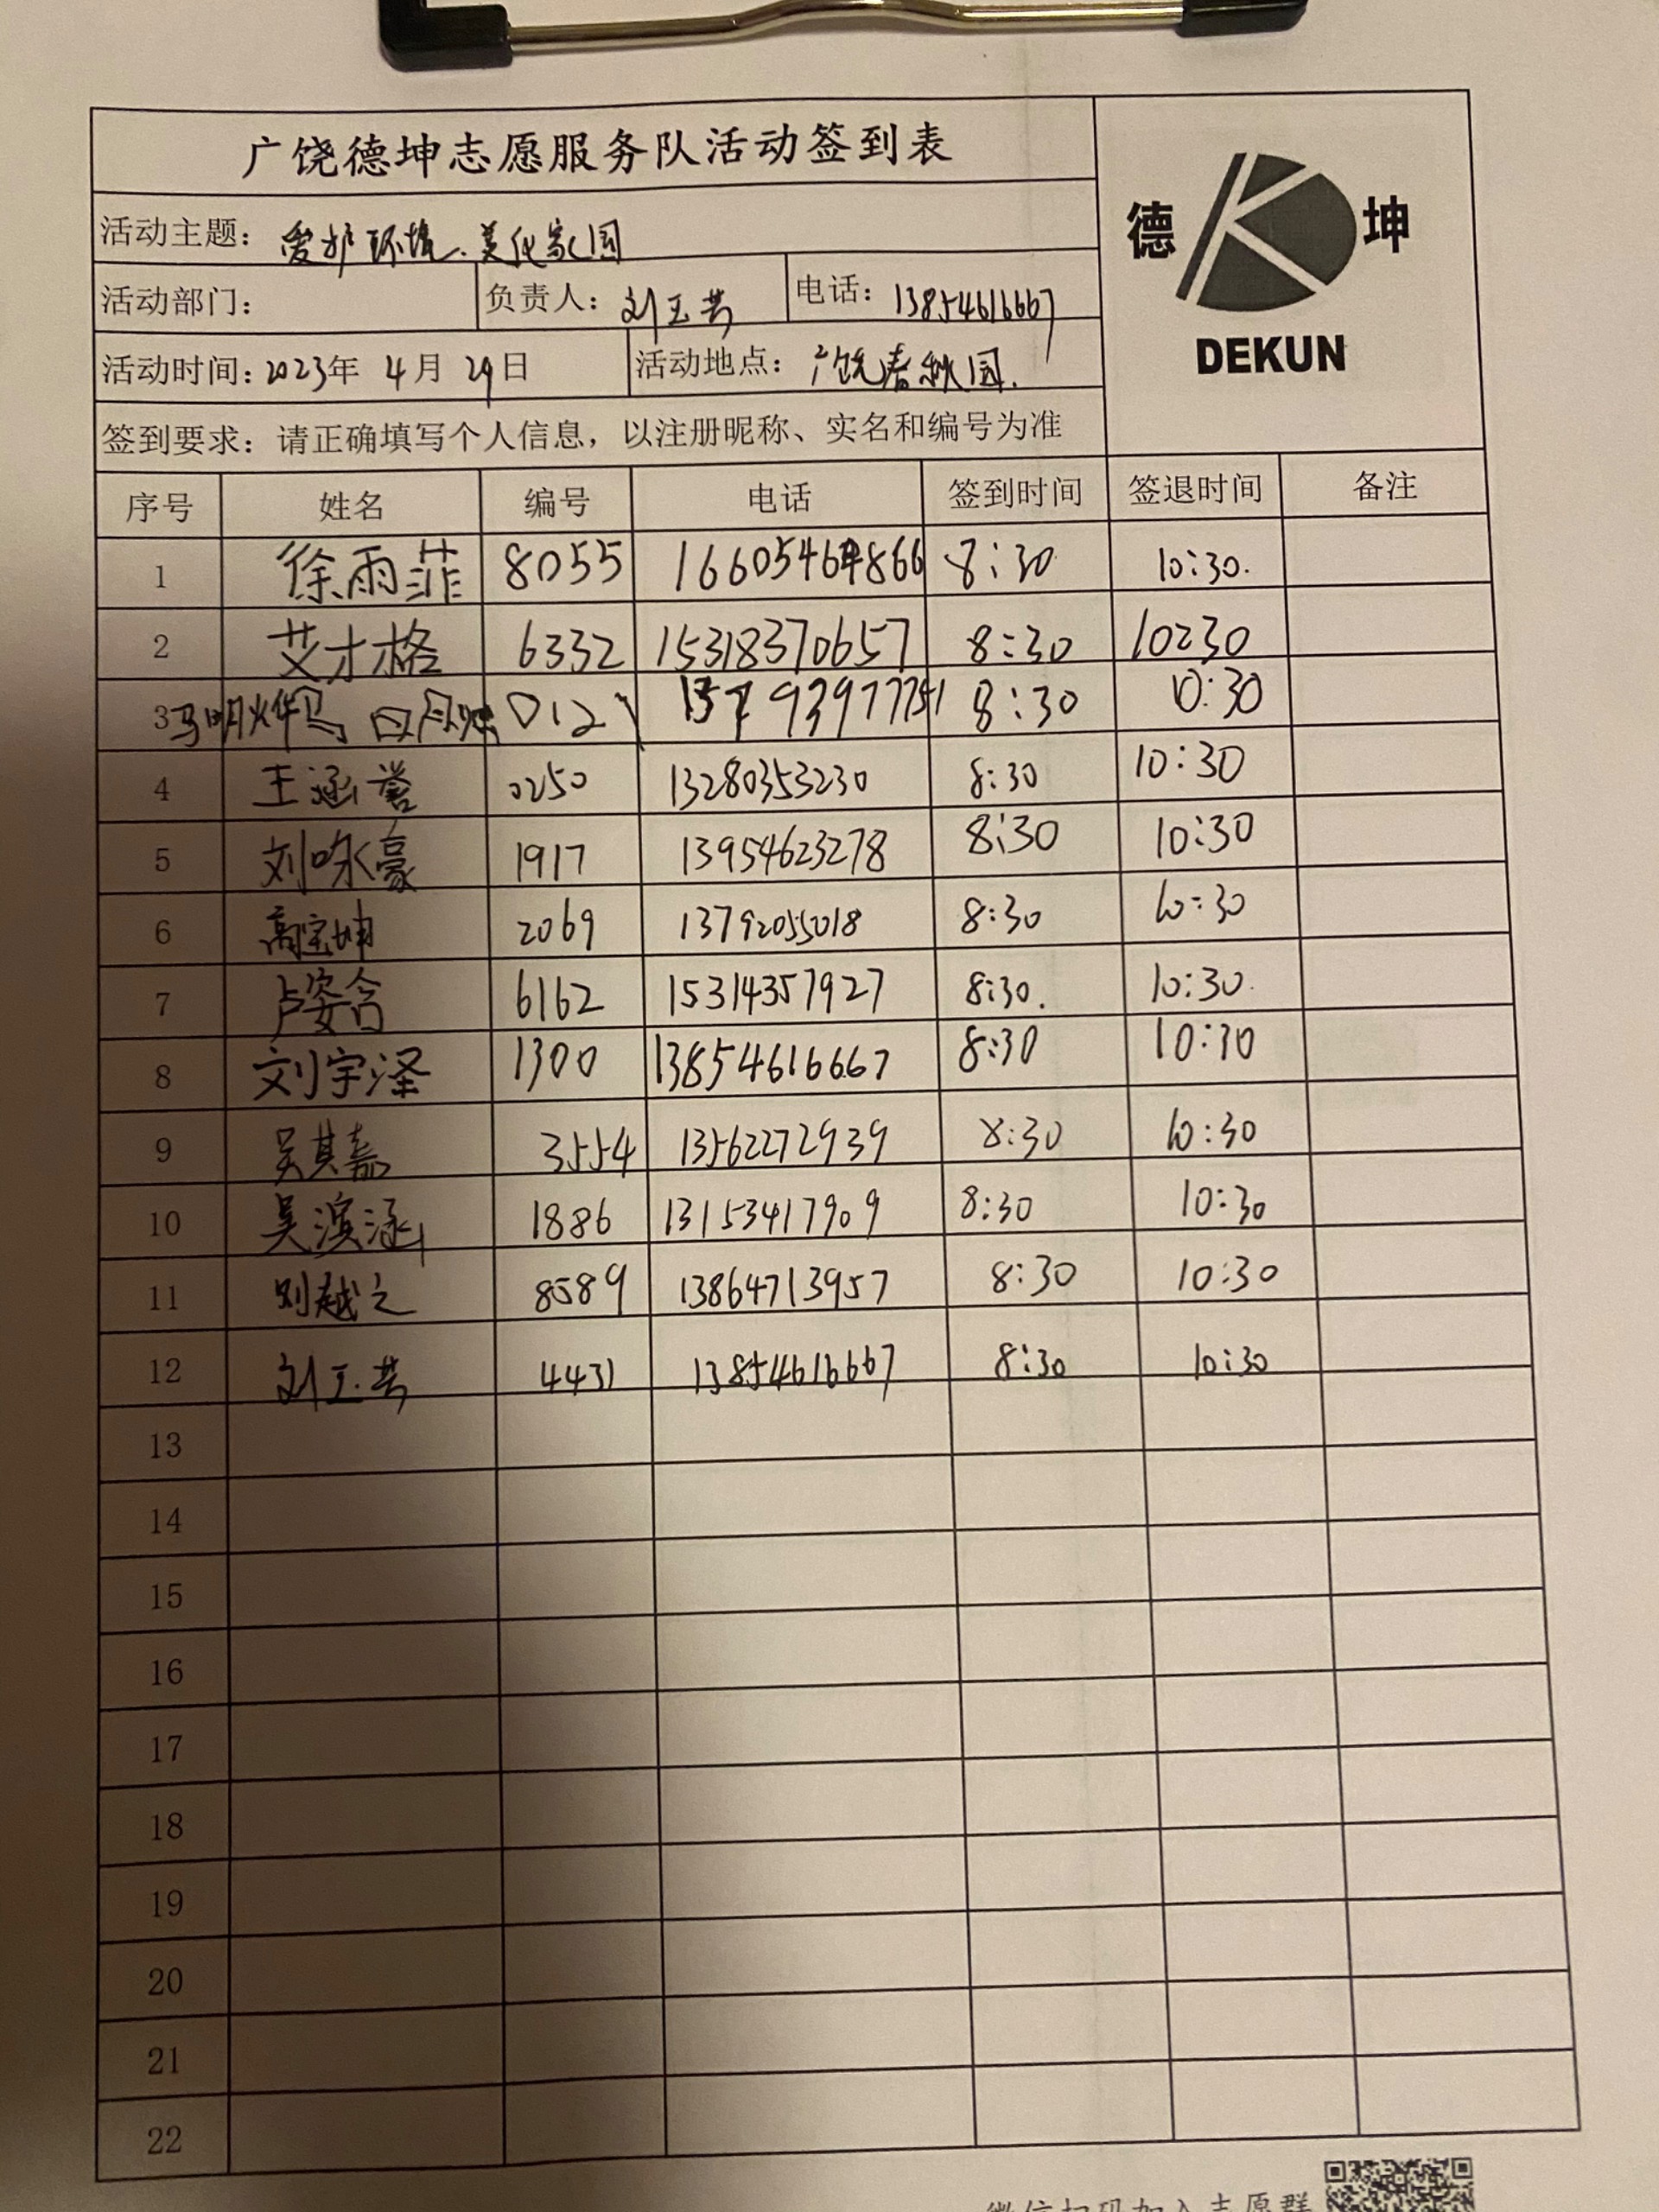 广饶德坤志愿服务队活动签到表
德 坤
DEKUN
活动主题：爱护环境.美化家园
活动部门： 负责人：刘玉芸 电话：13854616667
活动时间：2023年 4月 29日 活动地点：广饶春秋园.
签到要求：请正确填写个人信息，以注册昵称、实名和编号为准
序号 姓名 编号 电话 签到时间 签退时间 备注
1 徐雨菲 8055 8:30 10:30.
2 艾才格 6332 15318370657 8:30 10:30
3 马明烨 8:30 10:30
4 王涵誉 0250 13280353230 8:30 10:30
5 刘咏豪 1917 13954623278 8:30 10:30
6 高宝坤 2069 13792055018 8:30 10:30
7 卢姿含 6162 15314357927 8:30. 10:30.
8 刘宇泽 1300 13854616667 8:30 10:30
9 吴其嘉 3554 13562272939 8:30 10:30
10 吴滨涵 1886 13153417909 8:30 10:30
11 刘越之 8589 13864713957 8:30 10:30
12 刘玉芸 4431 13854616667 8:30 10:30
13
14
15
16
17
18
19
20
21
22
微信扫码加入志愿群